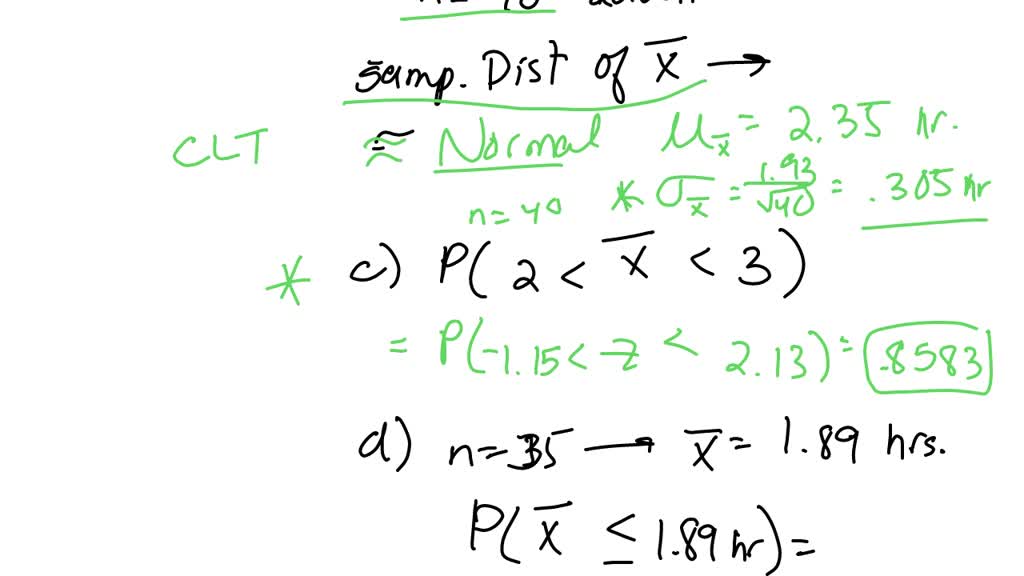 samp. Dist of x̄ →
CLT ≈ Normal μx̄ = 2.35 hr.
n=40 * σx̄ = 1.93/√40 = .305 hr
* c) P( 2 < x̄ < 3 )
= P(-1.15 < z < 2.13) = .8583
d) n=35 → x̄ = 1.89 hrs.
P( x̄ ≤ 1.89 hr) =